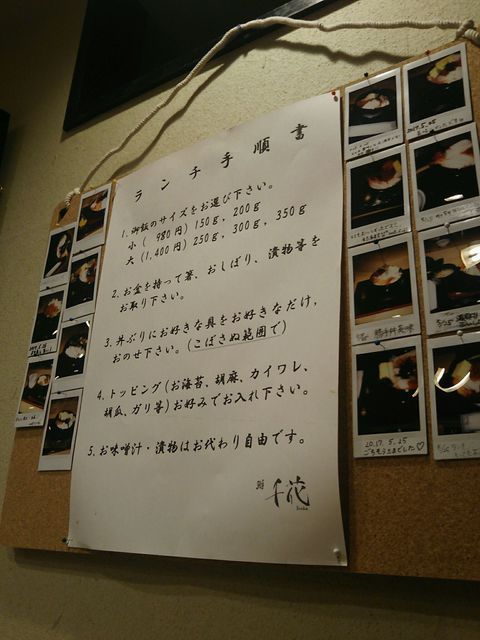 ランチ手順書
1. 御飯のサイズをお選び下さい。
小 ( 980円) 150g, 200g
大 (1,400円) 250g, 300g, 350g
2. お盆を持って箸、おしぼり、漬物等を
お取り下さい。
3. 丼ぶりにお好きな具をお好きなだけ,
おのせ下さい。(こぼさぬ範囲で)
4. トッピング(お海苔、胡麻、カイワレ、
胡瓜、ガリ等)お好みでお入れ下さい。
5. お味噌汁・漬物はお代わり自由です。
鮨 千花
2017.5.25
ごちそうさまでした♡